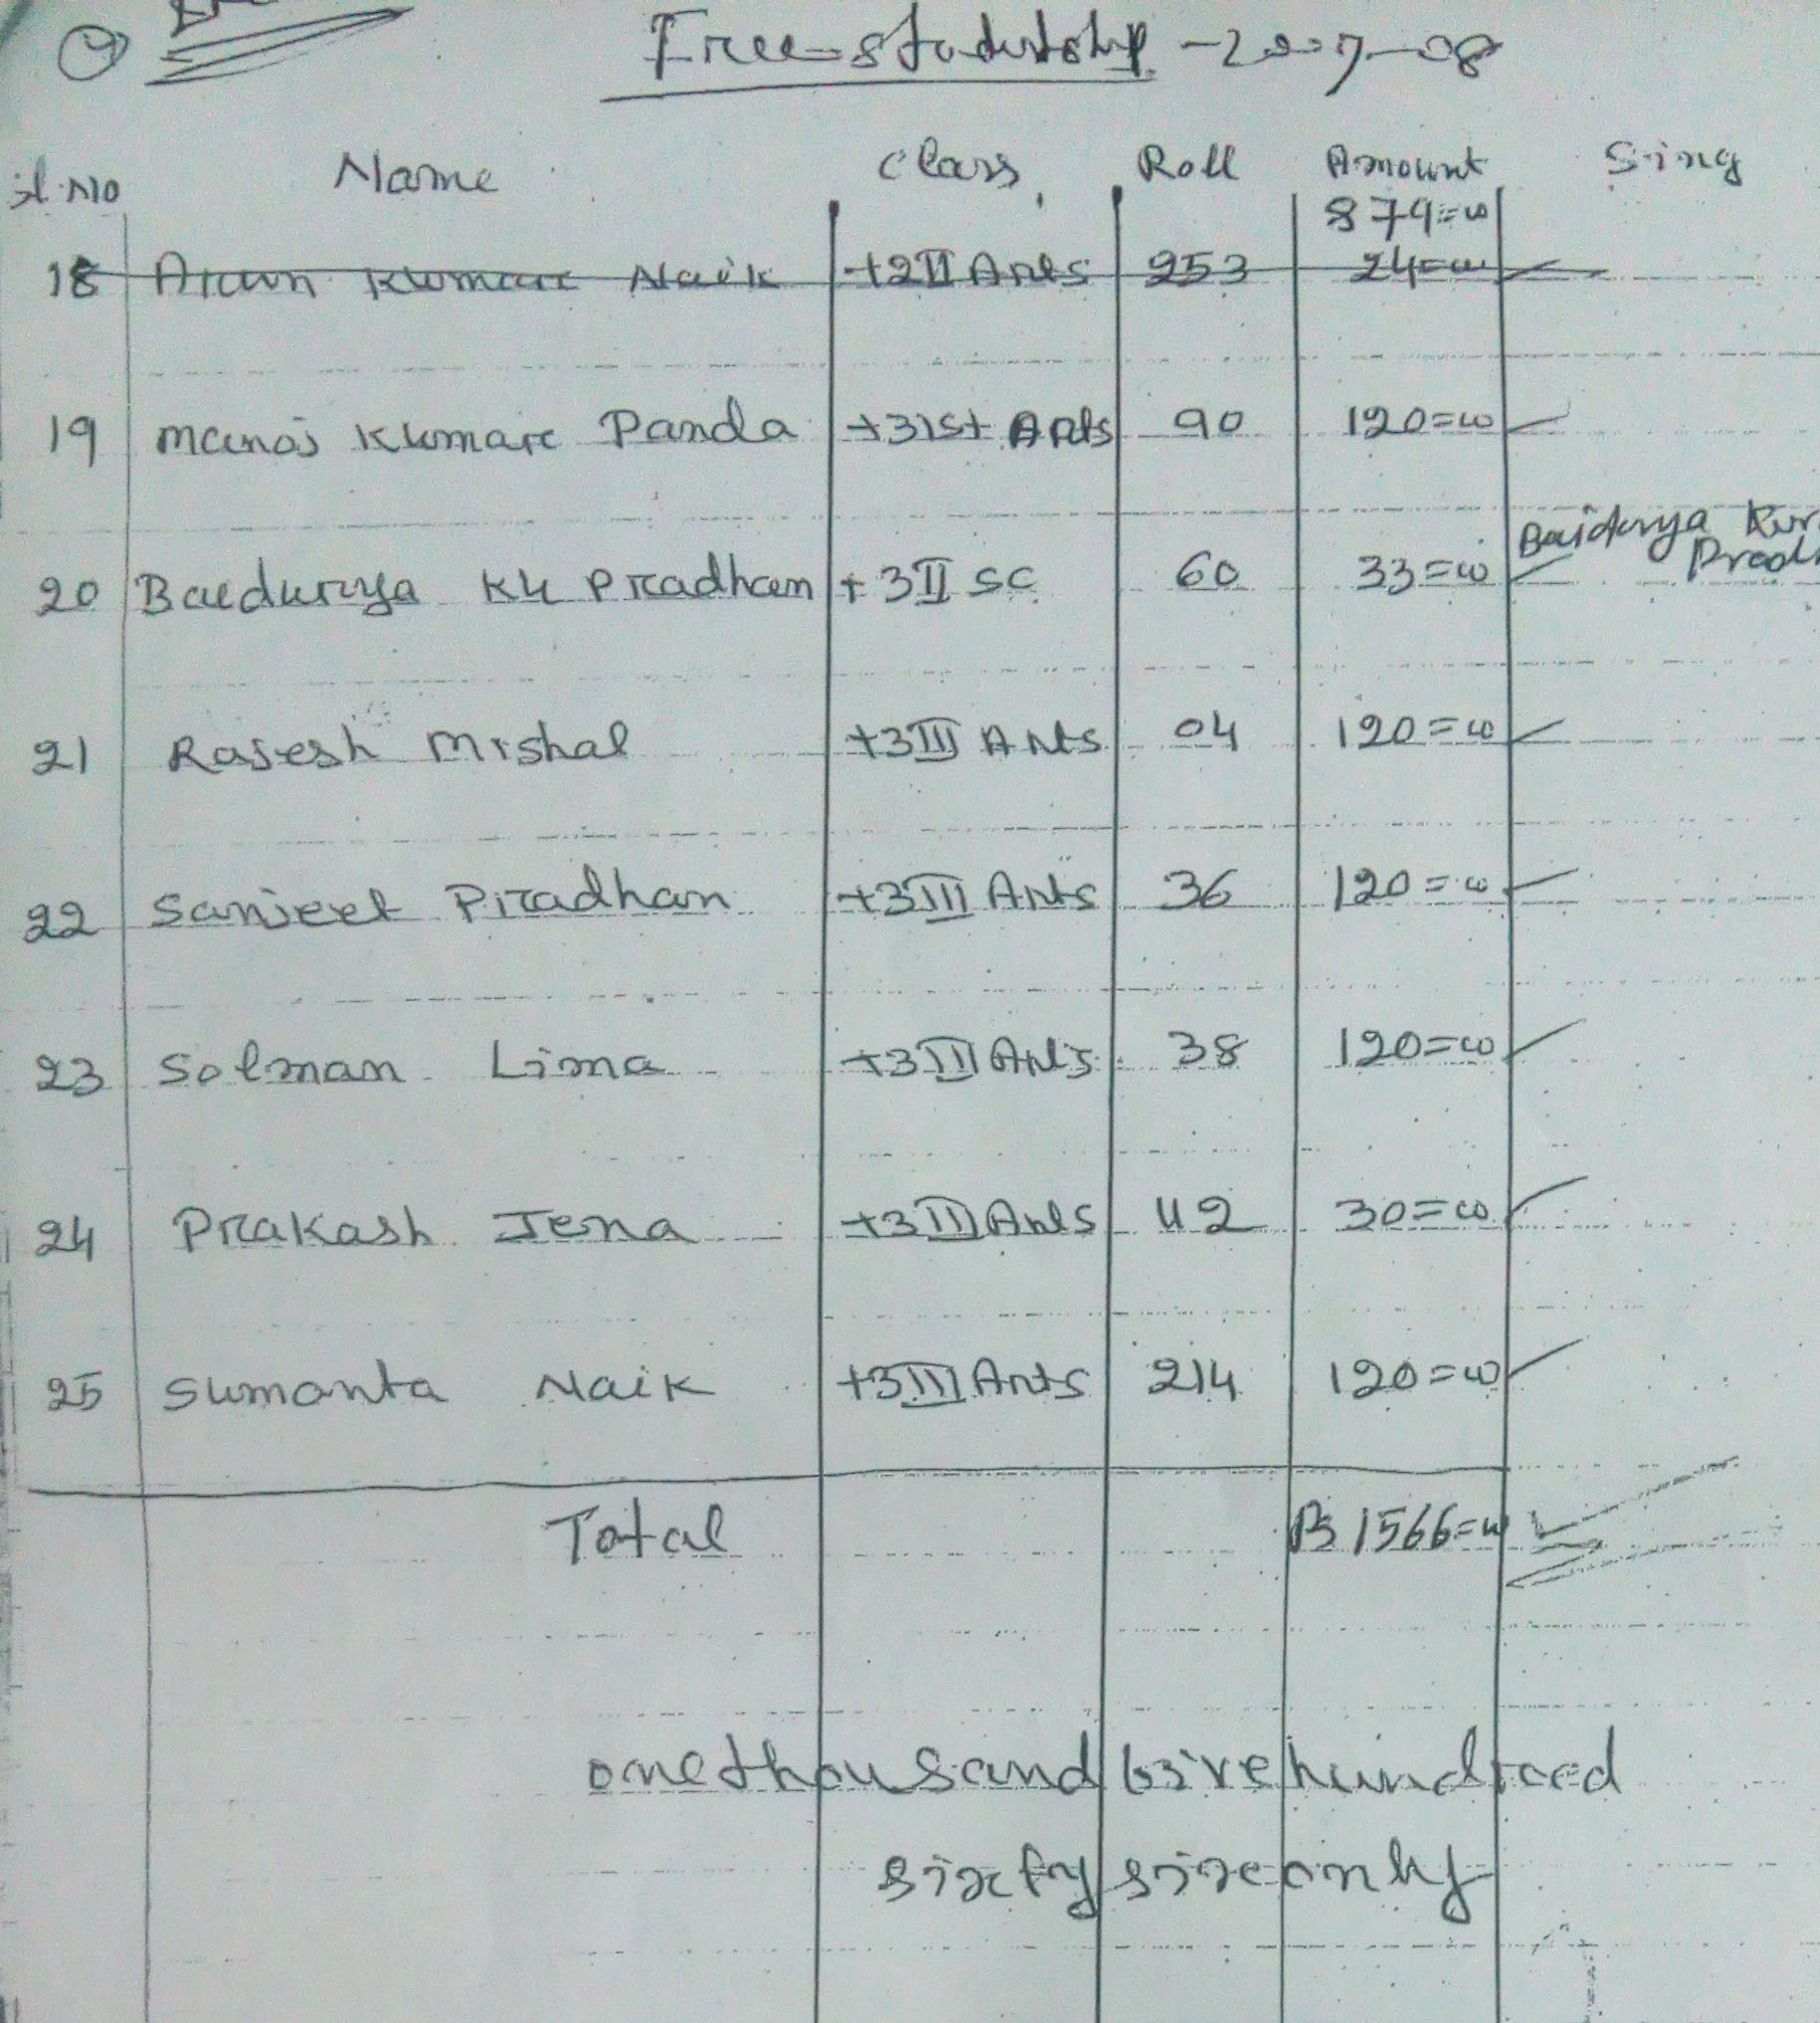 Free studentship - 2007-08
Sl.No Name Class Roll Amount Sing
879=00
18 Arun Kumar Naik +2 II Arts 253 24=00
19 Manoj Kumar Panda +3 1st Arts 90 120=00
Baidurya Kum
20 Baidurya Ku Pradhan +3 II SC 60 33=00 Prad
21 Rajesh Mishal +3 III Arts 04 120=00
22 Sanjeet Pradhan +3 III Arts 36 120=00
23 Solman Lima +3 III Arts 38 120=00
24 Prakash Jena +3 III Arts 42 30=00
25 Sumanta Naik +3 III Arts 214 120=00
Total Rs 1566=00
one thousand five hundred
sixty six only